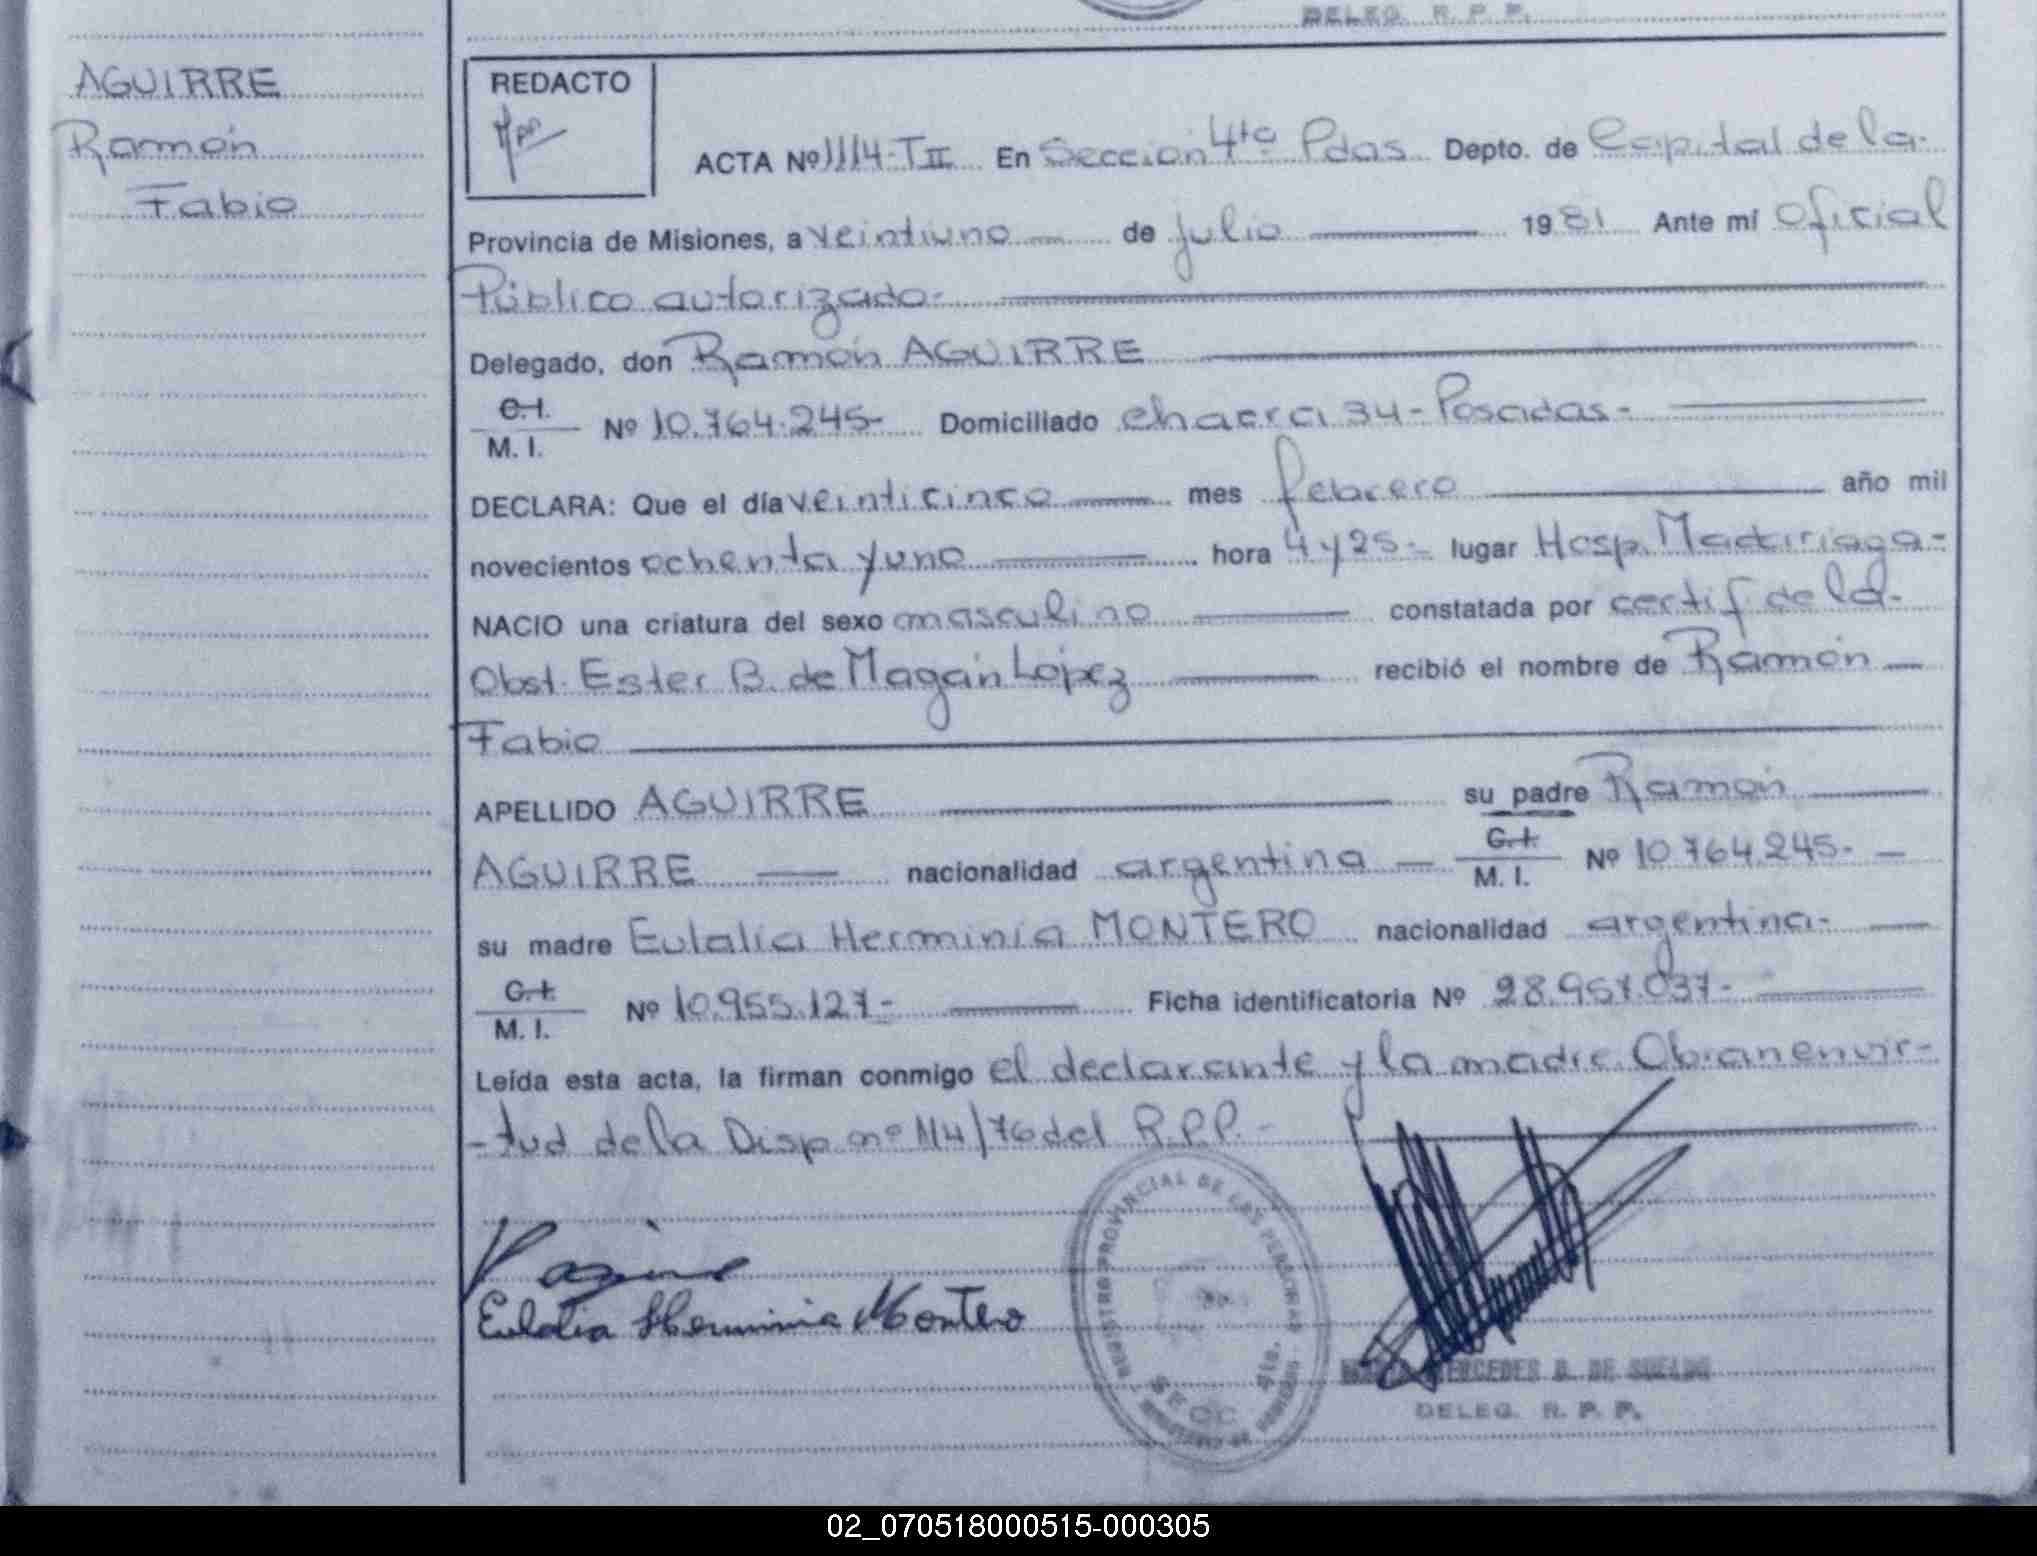 DELEG. R. P. P.
AGUIRRE
Ramón
Fabio
REDACTO
ACTA Nº 1114-TII En Sección 4ta Pdas Depto. de Capital de la-
Provincia de Misiones, a veintiuno de julio 1981 Ante mí Oficial
Público autorizado-
Delegado, don Ramón AGUIRRE
C.I. / M. I. Nº 10.764.245- Domiciliado chacra 34- Posadas-
DECLARA: Que el día veinticinco mes febrero año mil
novecientos ochenta y uno hora 4 y 25- lugar Hosp. Madariaga-
NACIO una criatura del sexo masculino constatada por certif de la-
Obst. Ester B. de Magán López recibió el nombre de Ramón
Fabio
APELLIDO AGUIRRE su padre Ramón
AGUIRRE nacionalidad argentina C.I. / M. I. Nº 10.764.245-
su madre Eulalia Herminia MONTERO nacionalidad argentina-
C.I. / M. I. Nº 10.955.127- Ficha identificatoria Nº 28.957.037-
Leída esta acta, la firman conmigo el declarante y la madre. Obran en vir-
-tud de la Disp. nº 114/76 del R.P.P.-
Eulalia Herminia Montero
REGISTRO PROVINCIAL DE LAS PERSONAS
SEOC
MERCEDES B. DE SUELDO
DELEG. R. P. P.
02_070518000515-000305